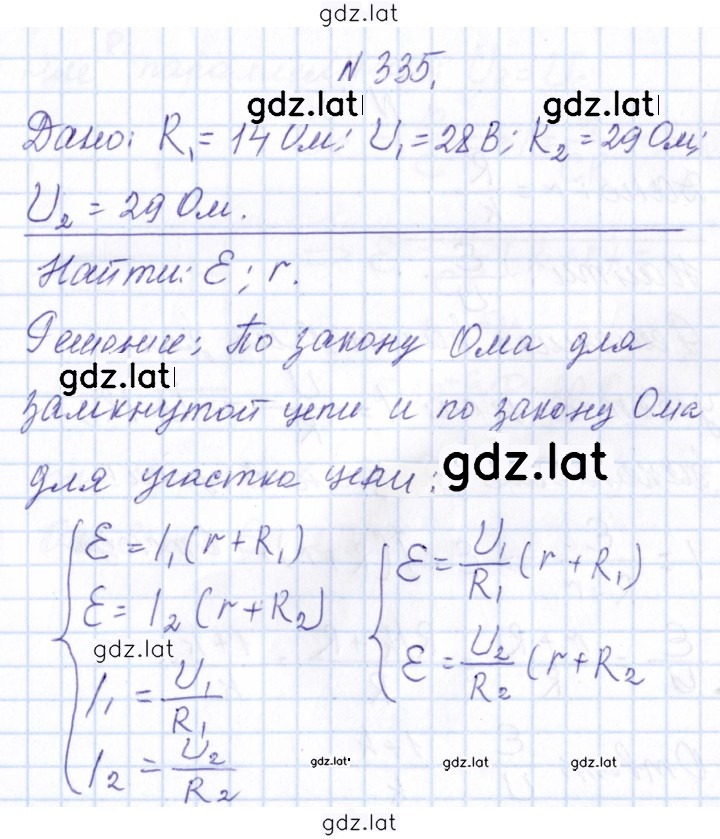 gdz.lat
N 335.
gdz.lat gdz.lat
Дано: R₁ = 14 Ом; U₁ = 28 В; R₂ = 29 Ом;
U₂ = 29 Ом.
Найти: ℰ; r.
Решение: По закону Ома для
gdz.lat
замкнутой цепи и по закону Ома
для участка цепи:
gdz.lat
ℰ = I₁(r + R₁)
ℰ = I₂(r + R₂)
gdz.lat
I₁ = U₁/R₁
I₂ = U₂/R₂
ℰ = U₁/R₁ (r + R₁)
ℰ = U₂/R₂ (r + R₂
gdz.lat gdz.lat gdz.lat
gdz.lat